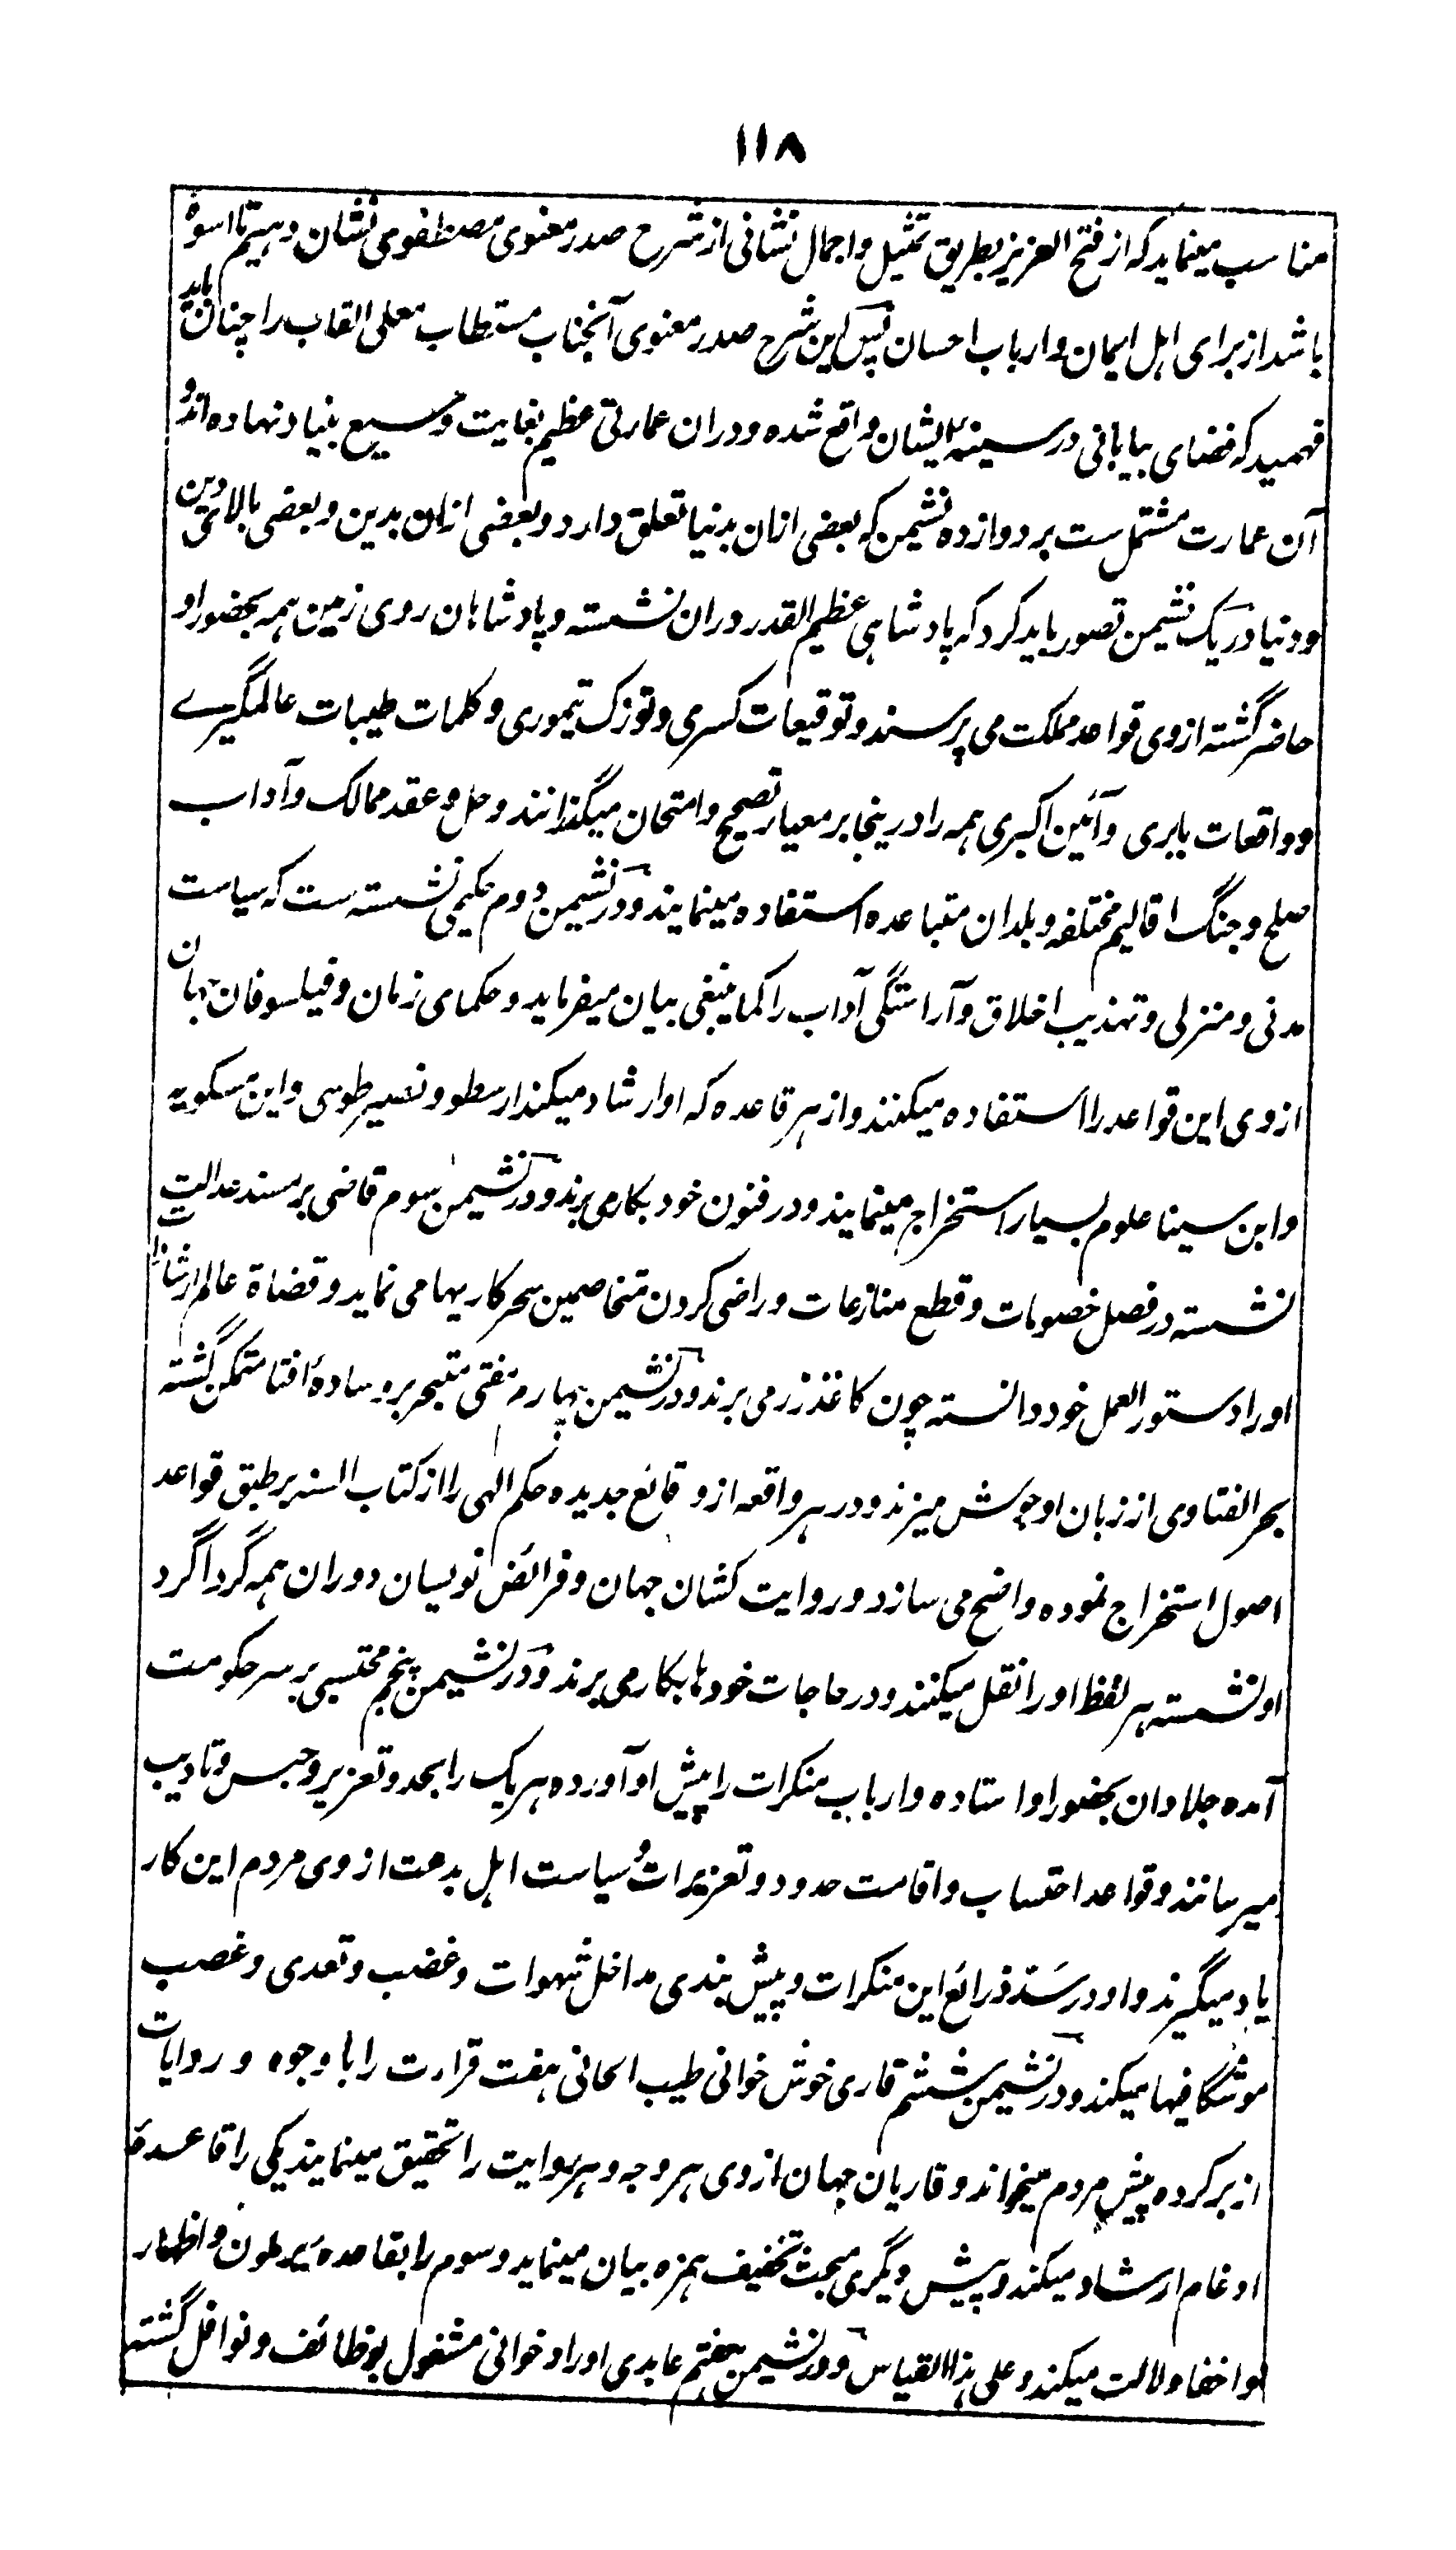 ۱۱۸
مناسب مینماید که از فتح العزیز بطریق تمثیل و اجمال نشانی از شرح صدر معنوی مصطفوی نشان دهیم تا اسوهٔ
باشد از برای اهل ایمان و ارباب احسان پس این شرح صدر معنوی آنجناب مستطاب معلی القاب را چنان باید
فهمید که فضای بیابانی در سینهٔ ایشان واقع شده و دران عمارتی عظیم بغایت وسیع بنیاد نهاده اند و
آن عمارت مشتمل ست بر دوازده نشیمن که بعضی ازان بدنیا تعلق دارد و بعضی ازان بدین و بعضی بالای دین
و دنیا در یک نشیمن تصور باید کرد که پادشاهی عظیم القدر دران نشسته و پادشاهان روی زمین همه بحضور او
حاضر گشته از وی قواعد مملکت می پرسند و توقیعات کسری و توزک تیموری و کلمات طیبات عالمگیرے
و واقعات بابری و آئین اکبری همه را درینجا بر معیار تصحیح و امتحان میگذرانند و حل و عقد ممالک و آداب
صلح و جنگ اقالیم مختلفه و بلدان متباعده استفاده مینمایند و در نشیمن دوم حکیمی نشسته ست که سیاست
مدنی و منزلی و تهذیب اخلاق و آراستگی آداب را کما ینبغی بیان میفرماید و حکمای زمان و فیلسوفان جهان
از وی این قواعد را استفاده میکنند و از هر قاعده که او ارشاد میکند ارسطو و نصیر طوسی و ابن مسکویه
و ابن سینا علوم بسیار استخراج مینمایند و در فنون خود بکار می برند و در نشیمن سوم قاضی بر مسند عدالت
نشسته در فصل خصومات و قطع منازعات و راضی کردن متخاصمین سحر کاریها می نماید و قضاة عالم ارشادات
او را دستور العمل خود دانسته چون کاغذ زر می برند و در نشیمن چهارم مفتی متبحر بر وسادهٔ افتا متمکن گشته
بحر الفتاوی از زبان او جوش میزند و در هر واقعه از وقائع جدیده حکم الهی را از کتاب السنه بر طبق قواعد
اصول استخراج نموده واضح می سازد و روایت کشان جهان و فرائض نویسان دوران همه گرداگرد
او نشسته هر لفظ او را نقل میکنند و در حاجات خودها بکار می برند و در نشیمن پنجم محتسبی بر سر حکومت
آمده جلادان بحضور او استاده و ارباب منکرات را پیش او آورده هر یک را بحد و تعزیر و حبس و تادیب
میرسانند و قواعد احتساب و اقامت حدود و تعزیرات و سیاست اهل بدعت از وی مردم این کار
یاد میگیرند و او در سد ذرائع این منکرات و پیش بندی مداخل شهوات و غضب و تعدی و غصب
موشگافیها میکند و در نشیمن ششم قاری خوش خوانی طیب الحانی هفت قراءت را با وجوه و روایات
از بر کرده پیش مردم میخواند و قاریان جهان از وی هر وجه و هر روایت را تحقیق مینمایند یکی را قاعدهٔ
ادغام ارشاد میکند و پیش دیگری مبحث تخفیف همزه بیان مینماید و سوم را بقاعدهٔ یرملون و اظهار
و اخفا دلالت میکند و علی هذا القیاس و در نشیمن هفتم عابدی اوراد خوانی مشغول بوظائف و نوافل گشته